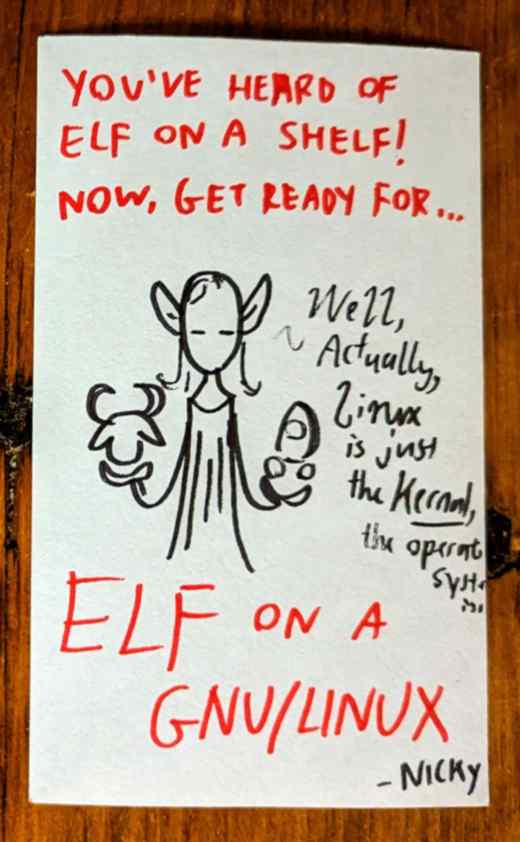 YOU'VE HEARD OF
ELF ON A SHELF!
NOW, GET READY FOR...
Well,
Actually,
Linux
is just
the Kernal,
the operat
syst
ELF ON A
GNU/LINUX
- NICKY